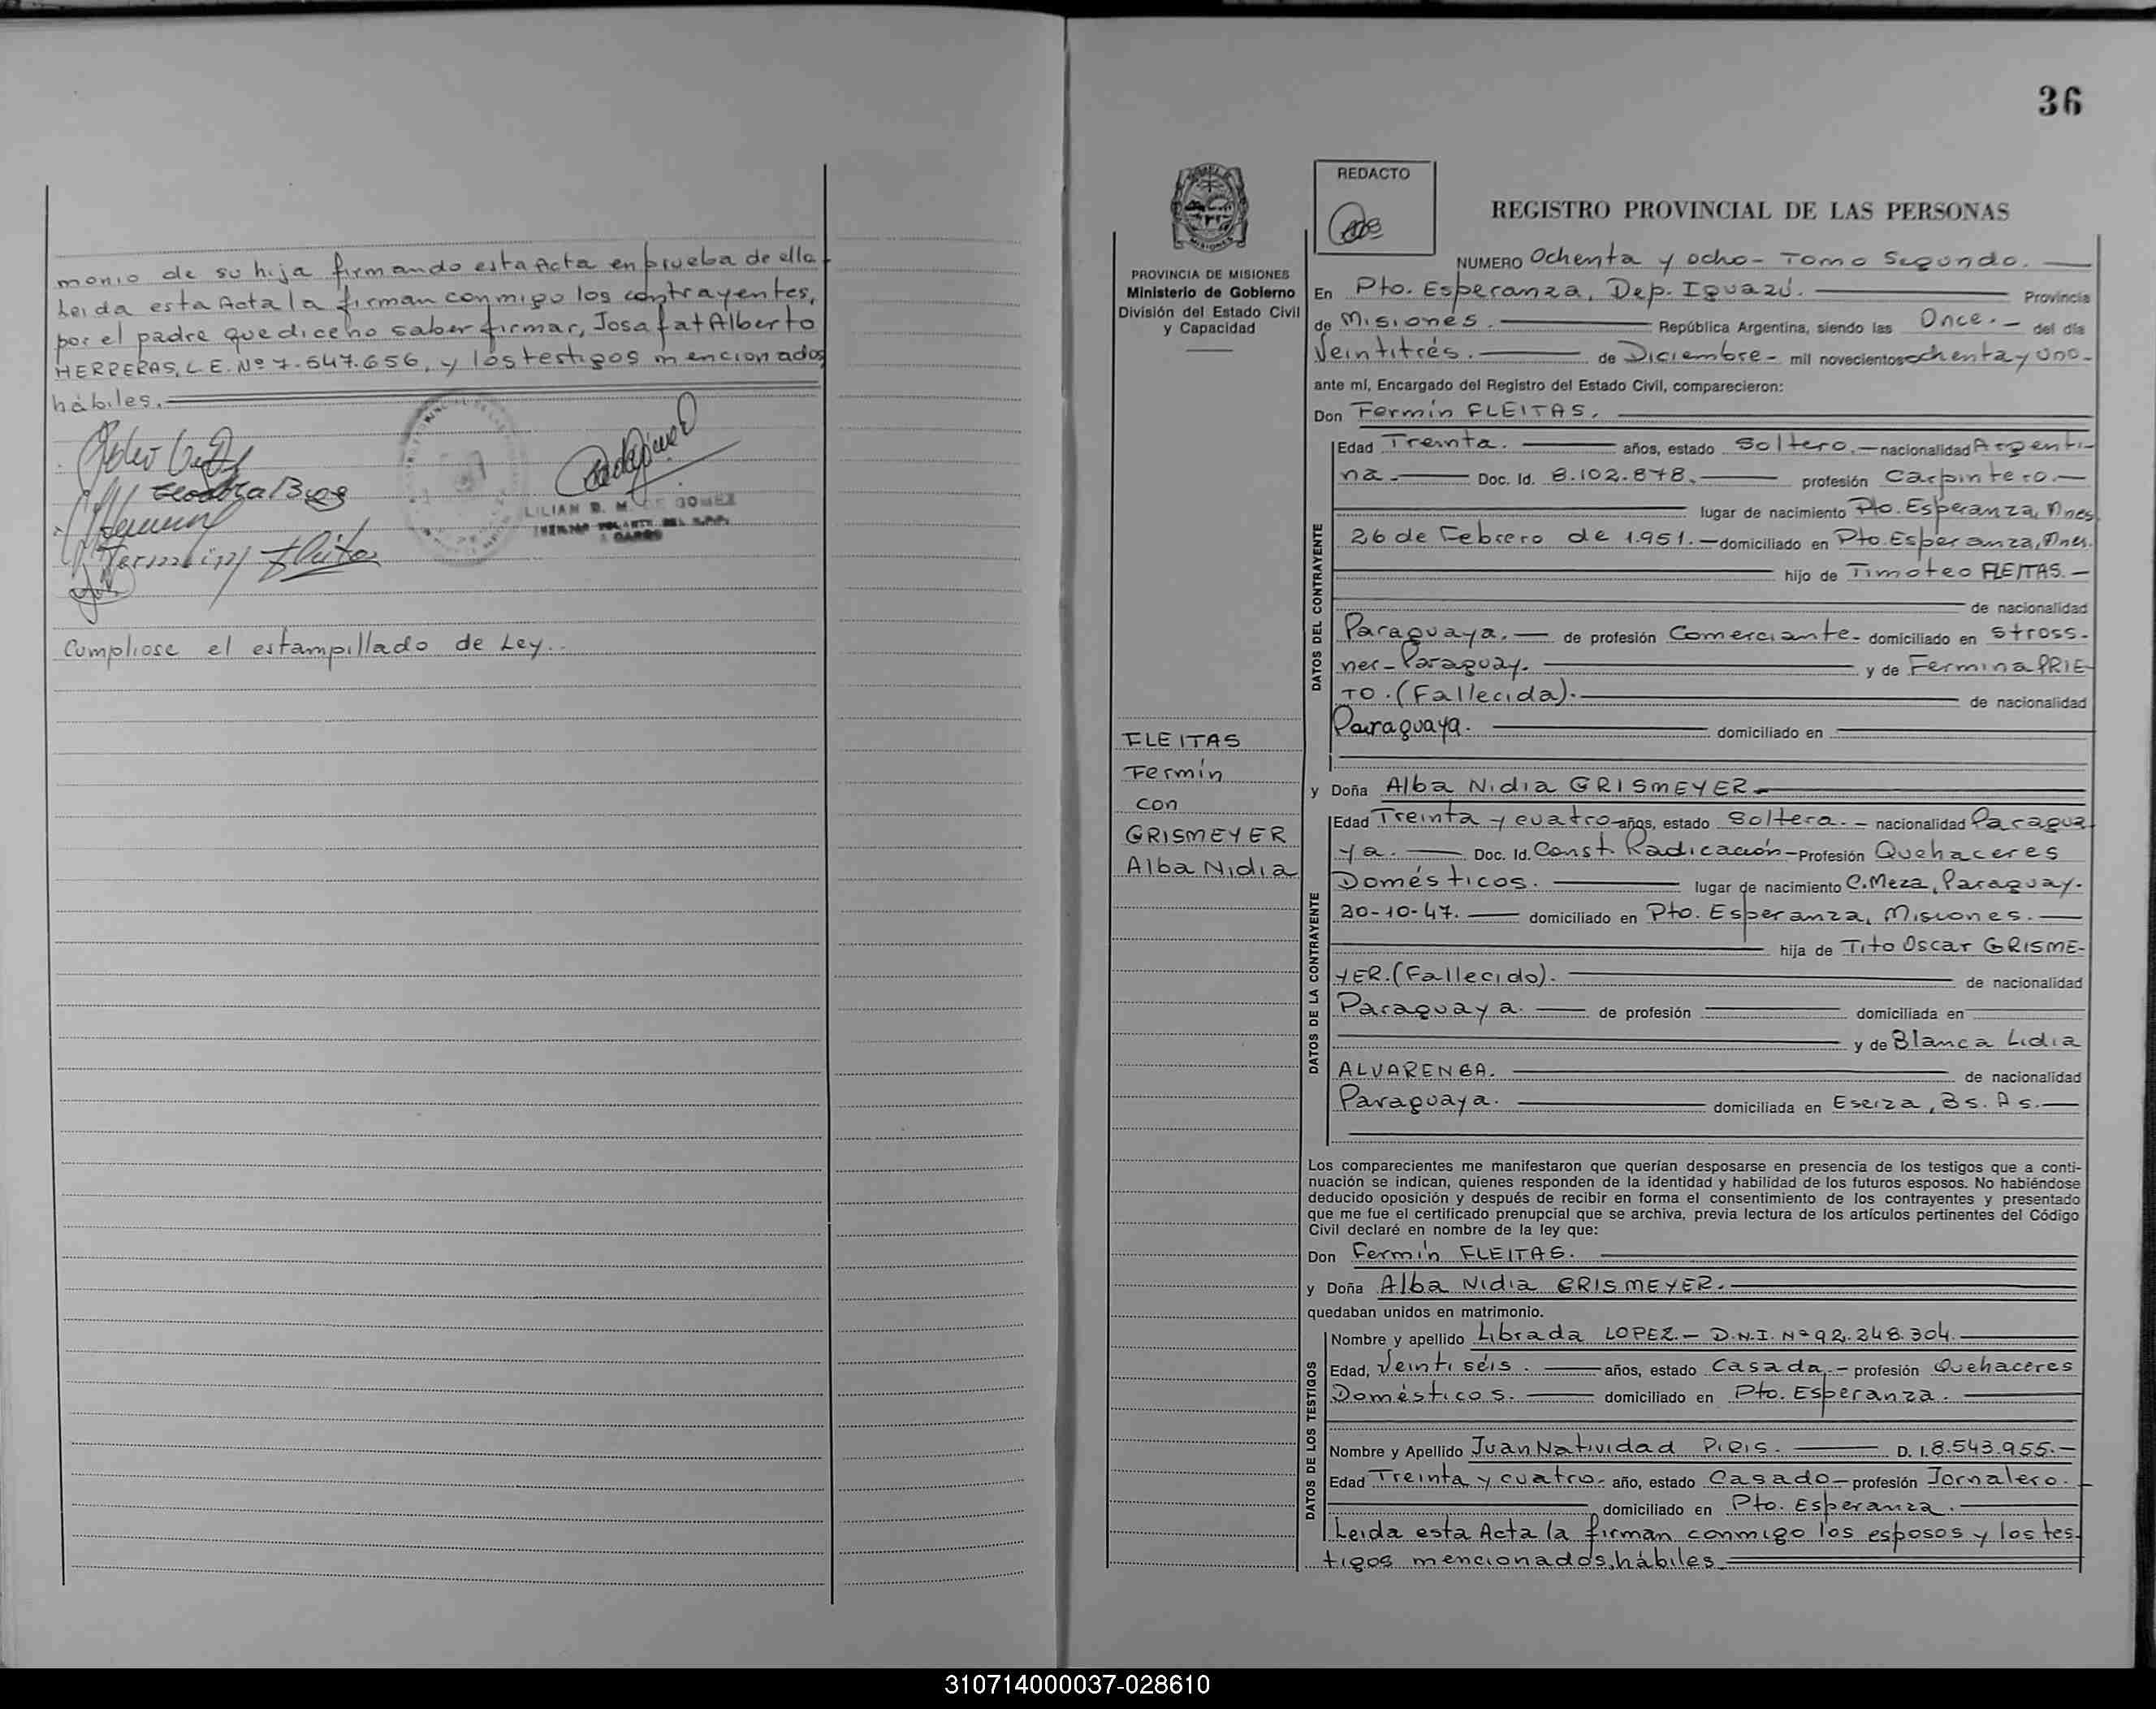 monio de su hija firmando esta Acta en prueba de ello.
Leida esta Acta la firman conmigo los contrayentes,
por el padre que dice no saber firmar, Josafat Alberto
HERRERAS, L.E. Nº 7.547.656, y los testigos mencionados
hábiles.
LILIAN B. M. DE GOMEZ
Cumpliose el estampillado de Ley.
36
PROVINCIA DE MISIONES
Ministerio de Gobierno
División del Estado Civil
y Capacidad
FLEITAS
Fermín
con
GRISMEYER
Alba Nidia
REDACTO
REGISTRO PROVINCIAL DE LAS PERSONAS
NUMERO Ochenta y ocho - Tomo Segundo.
En Pto. Esperanza, Dep. Iguazú. Provincia
de Misiones. República Argentina, siendo las Once. del día
Veintitrés. de Diciembre - mil novecientos ochenta y uno.
ante mí, Encargado del Registro del Estado Civil, comparecieron:
Don Fermín FLEITAS.
DATOS DEL CONTRAYENTE
Edad Treinta. años, estado Soltero. nacionalidad Argenti-
na. Doc. Id. 8.102.878. profesión Carpintero.
lugar de nacimiento Pto. Esperanza, Mnes.
26 de Febrero de 1.951. domiciliado en Pto. Esperanza, Mnes.
hijo de Timoteo FLEITAS.
de nacionalidad
Paraguaya. de profesión Comerciante. domiciliado en Stross-
ner - Paraguay. y de Fermina PRIE-
TO. (Fallecida). de nacionalidad
Paraguaya. domiciliado en
y Doña Alba Nidia GRISMEYER
DATOS DE LA CONTRAYENTE
Edad Treinta y cuatro años, estado Soltera. nacionalidad Paragua
ya. Doc. Id. Const. Radicación - Profesión Quehaceres
Domésticos. lugar de nacimiento C. Meza, Paraguay.
20-10-47. domiciliado en Pto. Esperanza, Misiones.
hija de Tito Oscar GRISME-
YER. (Fallecido). de nacionalidad
Paraguaya. de profesión domiciliada en
y de Blanca Lidia
ALVARENGA. de nacionalidad
Paraguaya. domiciliada en Eseiza, Bs. As.
Los comparecientes me manifestaron que querían desposarse en presencia de los testigos que a conti-
nuación se indican, quienes responden de la identidad y habilidad de los futuros esposos. No habiéndose
deducido oposición y después de recibir en forma el consentimiento de los contrayentes y presentado
que me fue el certificado prenupcial que se archiva, previa lectura de los artículos pertinentes del Código
Civil declaré en nombre de la ley que:
Don Fermín FLEITAS.
y Doña Alba Nidia GRISMEYER.
quedaban unidos en matrimonio.
DATOS DE LOS TESTIGOS
Nombre y apellido Librada LOPEZ. - D.N.I. Nº 92.248.304.
Edad, Veintiséis. años, estado Casada. - profesión Quehaceres
Domésticos. domiciliado en Pto. Esperanza.
Nombre y Apellido Juan Natividad PIRIS. D. I. 8.543.955.
Edad Treinta y cuatro. año, estado Casado profesión Jornalero.
domiciliado en Pto. Esperanza.
Leida esta Acta la firman conmigo los esposos y los tes
tigos mencionados, hábiles.
310714000037-028610